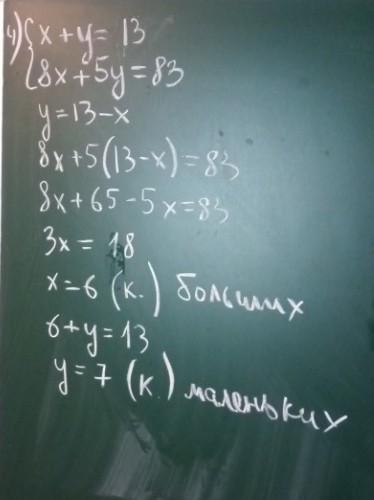 4) { x + y = 13
8x + 5y = 83
y = 13 - x
8x + 5(13 - x) = 83
8x + 65 - 5x = 83
3x = 18
x = 6 (к.) больших
6 + y = 13
y = 7 (к.) маленьких